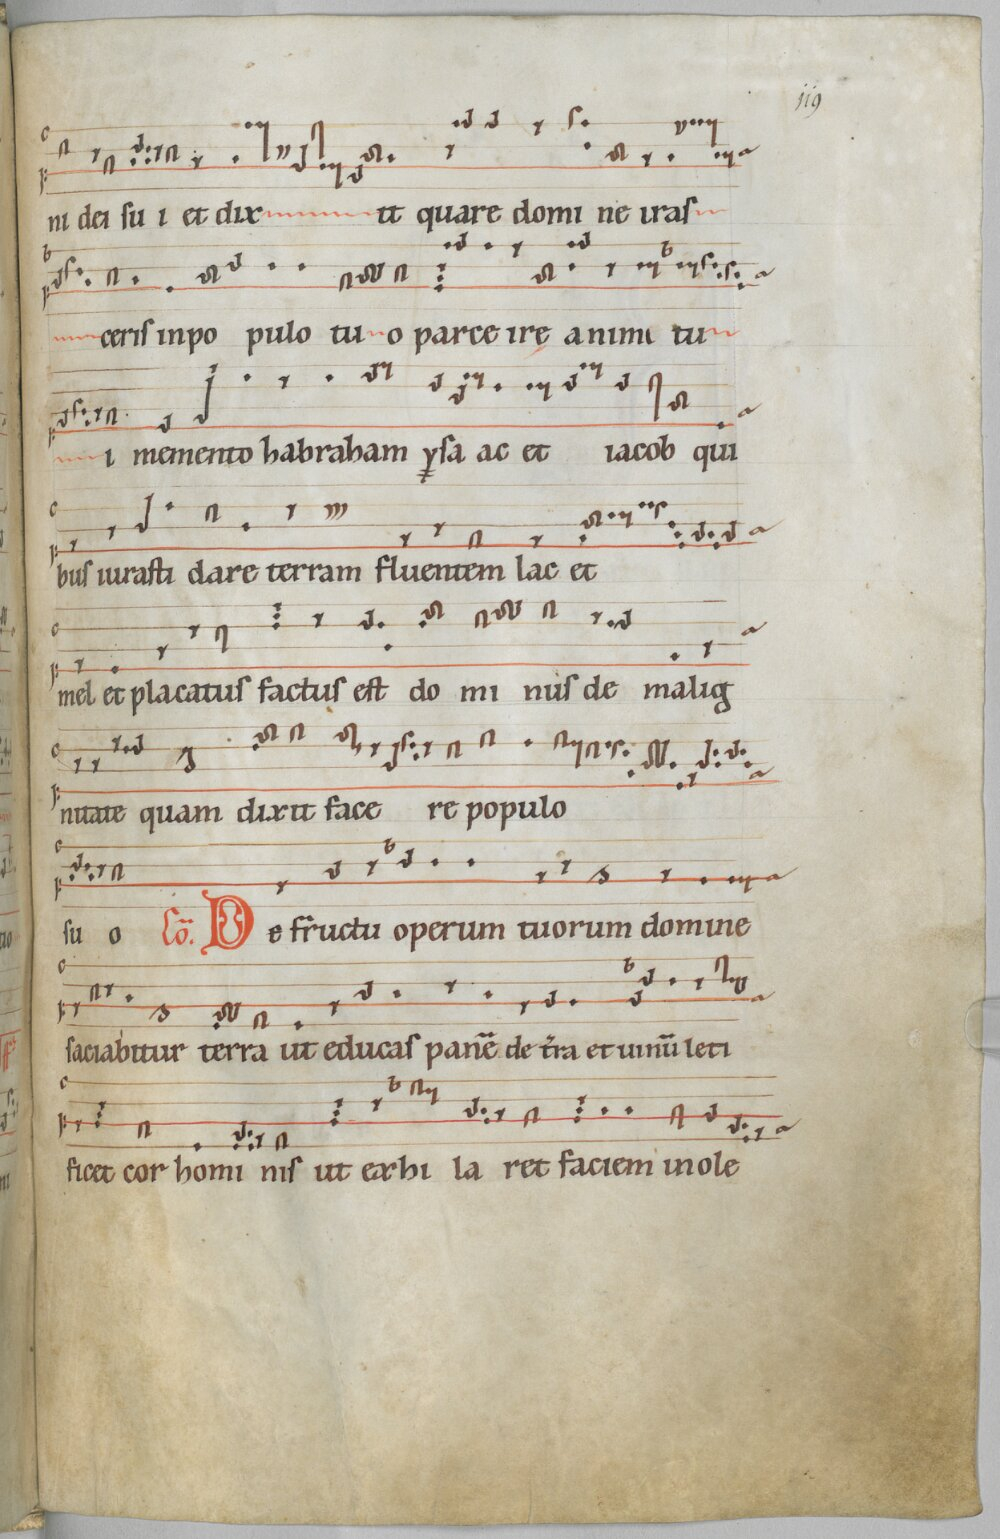 119
ni dei su i et dix it quare domi ne iras
ceris in po pulo tu o parce ire animi tu
i memento habraham ysa ac et iacob qui
bus iurasti dare terram fluentem lac et
mel et placatus factus est do mi nus de malig
nitate quam dixit face re populo
su o Co. De fructu operum tuorum domine
saciabitur terra ut educas pane de tra et uinu leti
ficet cor homi nis ut exhi la ret faciem in ole